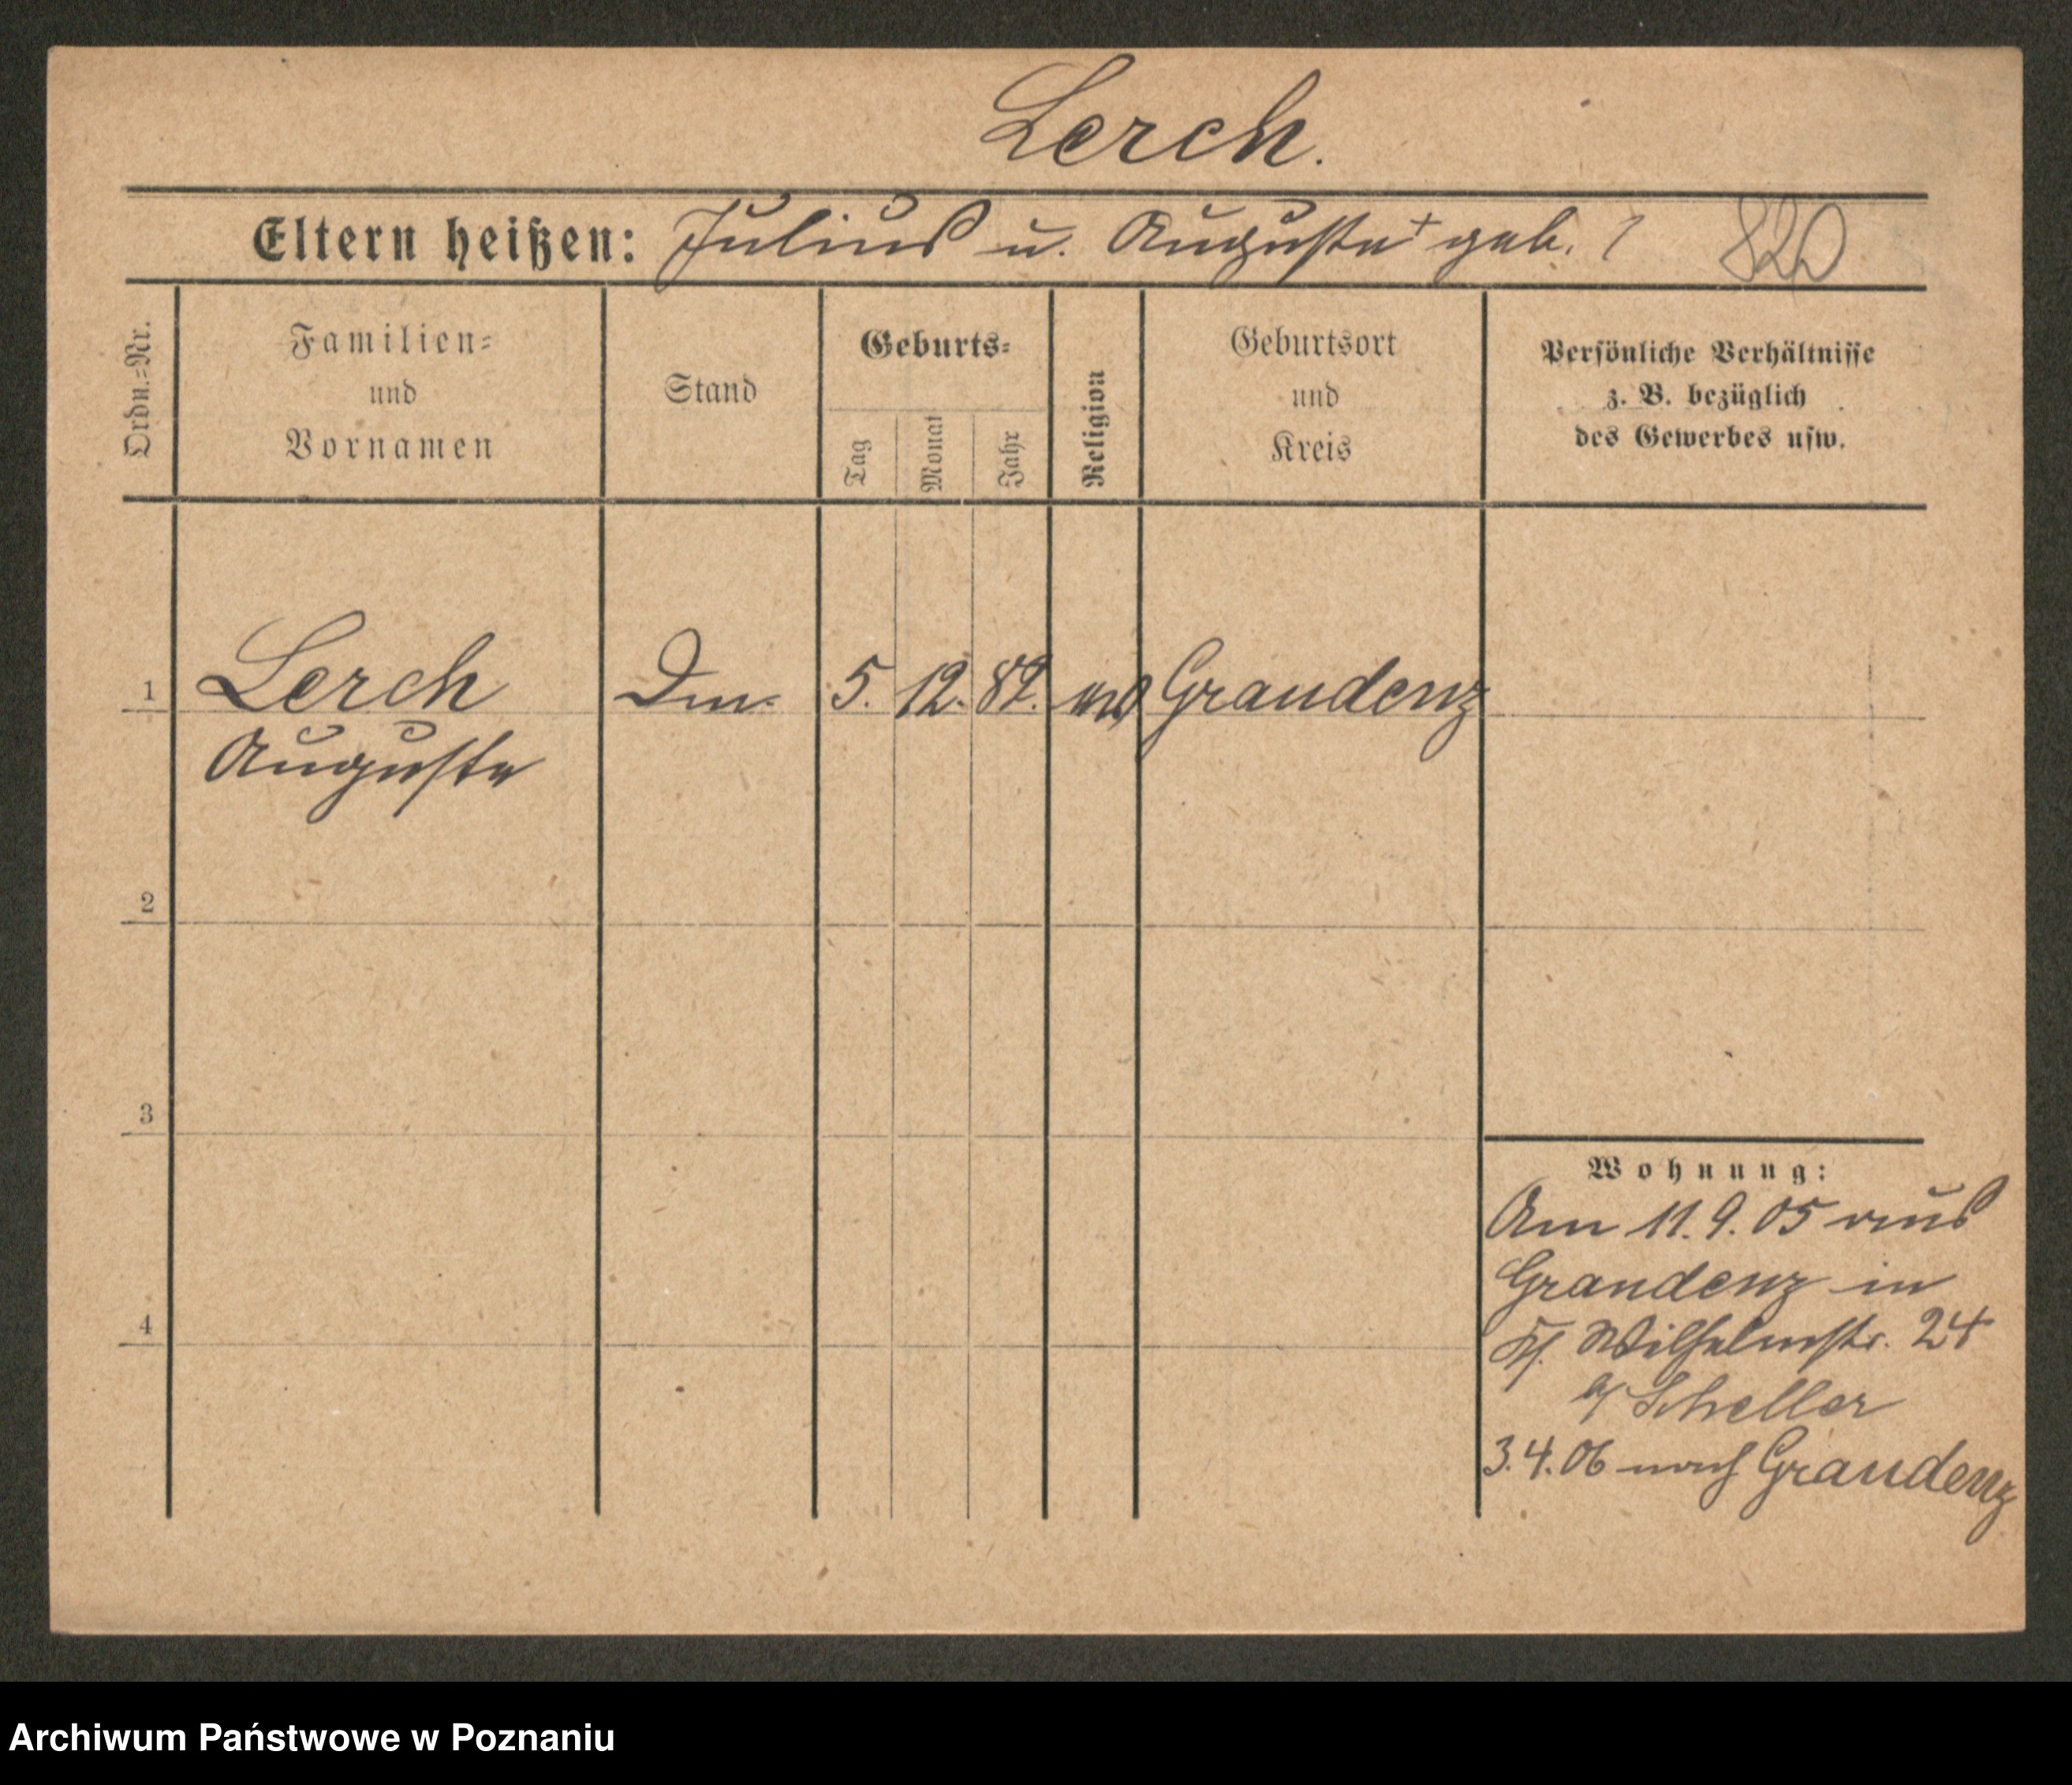 Lerch.
Eltern heißen: Julius u. Auguste + geb. ? 820
Ordn.=Nr.
Familien=
und
Vornamen
Stand
Geburts=
Tag
Monat
Jahr
Religion
Geburtsort
und
Kreis
Persönliche Verhältnisse
z. B. bezüglich
des Gewerbes usw.
1 Lerch 5. 12. Graudenz
Auguste
2
3
4
Wohnung:
Am 11.9.05 aus
Graudenz in
Wilhelmstr. 24
b/ Scheller
3.4.06 nach Graudenz
Archiwum Państwowe w Poznaniu